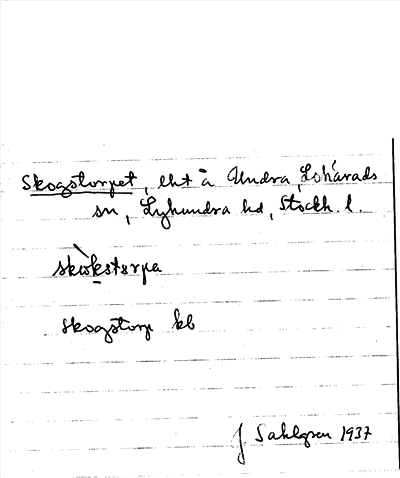 Skogstorpet, lht å Undra, Lohärads
sn, Lyhundra hd, Stockh. l.
skωkstɷrpa
Skogstorp kb
J Sahlgren 1937